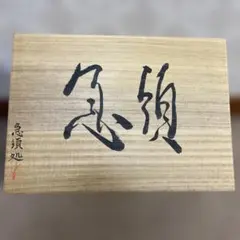 急須
急須処